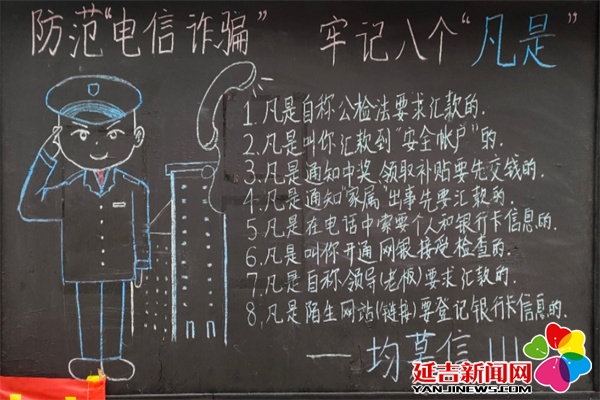 防范“电信诈骗” 牢记八个“凡是”
1.凡是自称公检法要求汇款的.
2.凡是叫你汇款到“安全帐户”的.
3.凡是通知中奖、领取补贴要先交钱的.
4.凡是通知“家属”出事先要汇款的.
5.凡是在电话中索要个人和银行卡信息的.
6.凡是叫你开通网银接受检查的.
7.凡是自称领导(老板)要求汇款的.
8.凡是陌生网站(链接)要登记银行卡信息的.
一均莫信!!!
延吉新闻网
WWW.YANJINEWS.COM